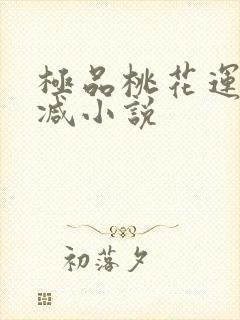 極品桃花運
减小說
初落夕